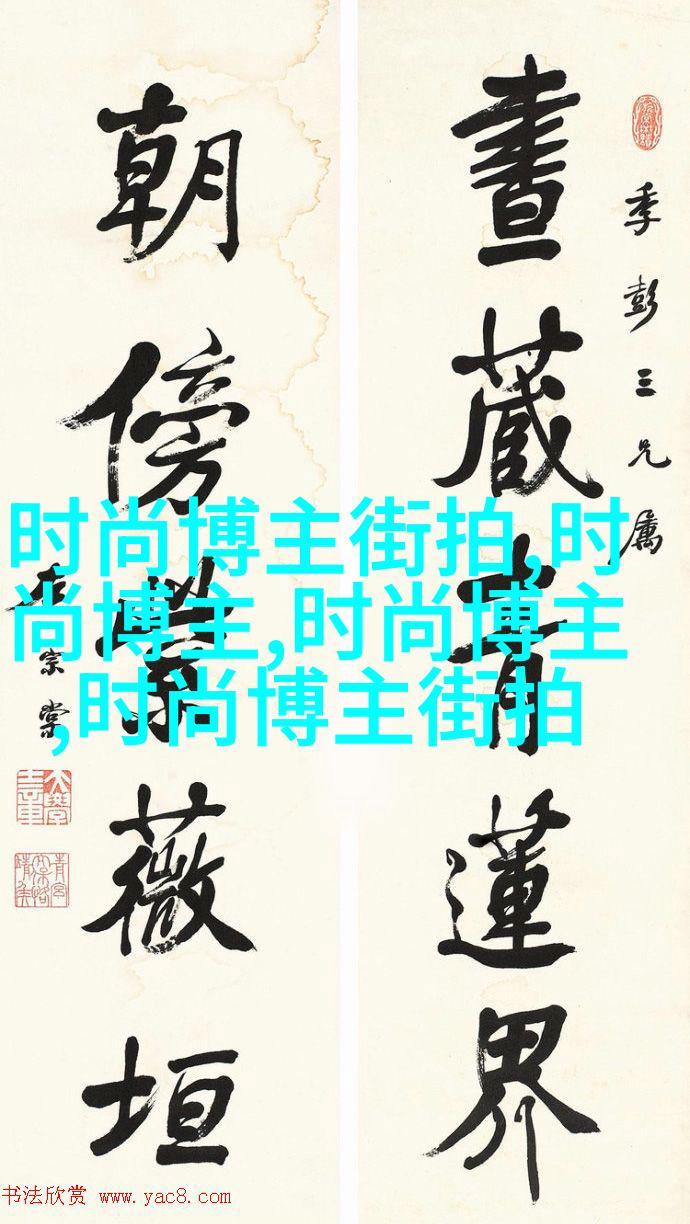 季彭三兄属
晝藏青蓮界
朝傍紫薇垣
左宗棠
时尚博主街拍,时
尚博主,时尚博主
,时尚博主街拍
书法欣赏 www.yac8.com